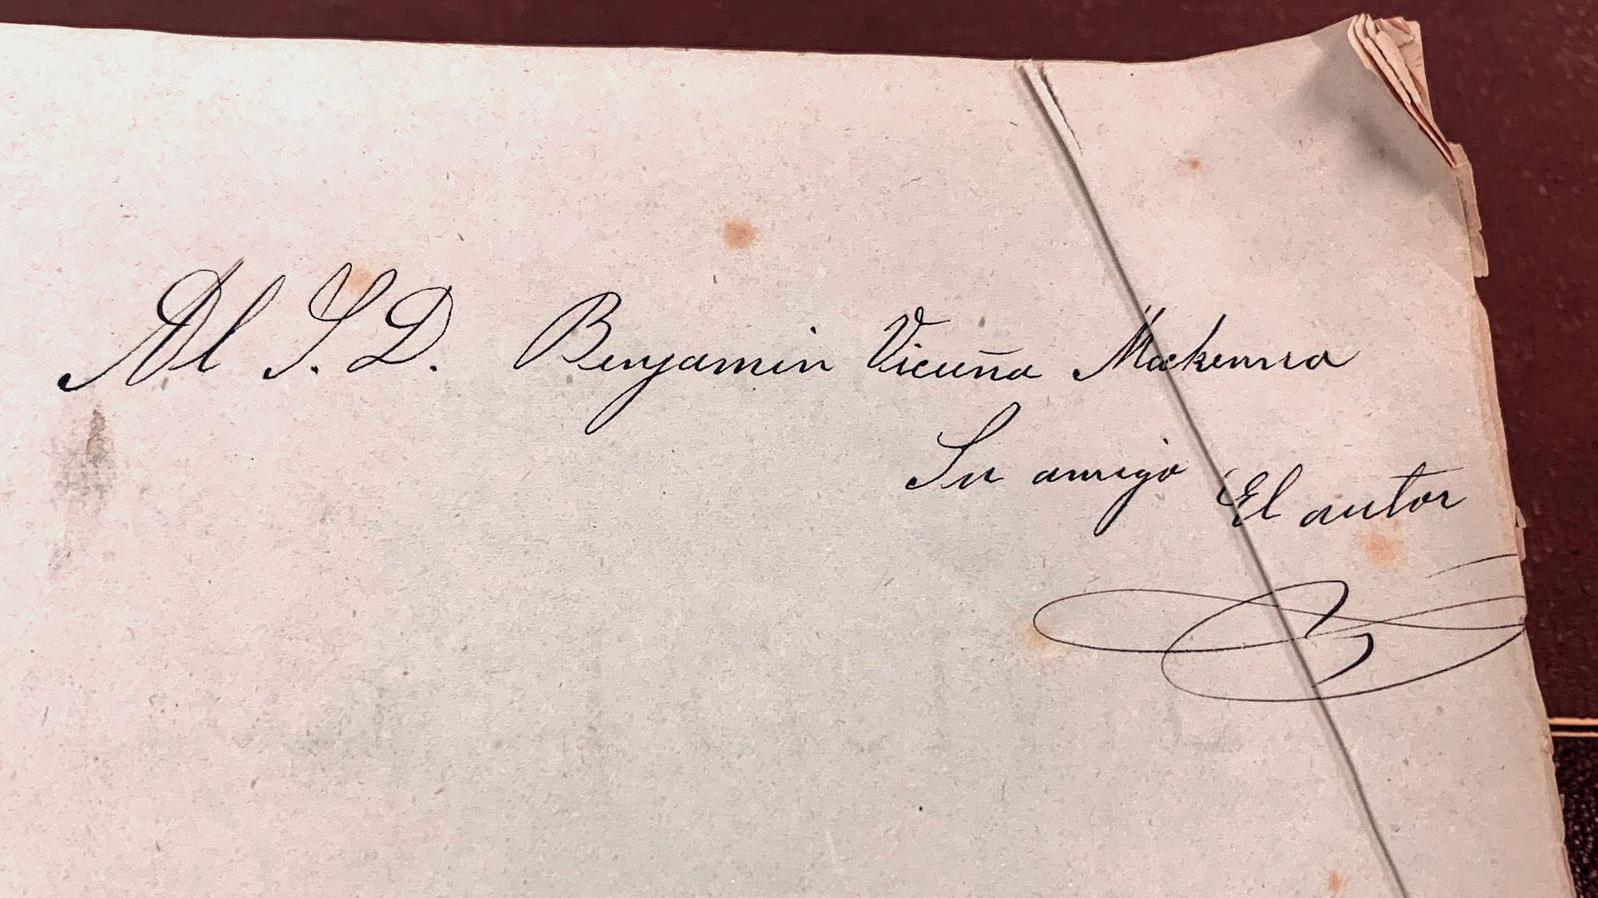 Al S. D. Benjamin Vicuña Mackenna
Su amigo El autor